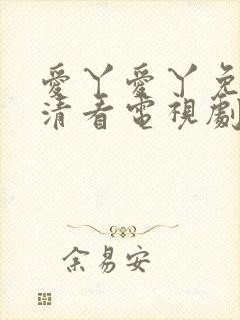 愛丫愛丫免
清看電視劇
余易安